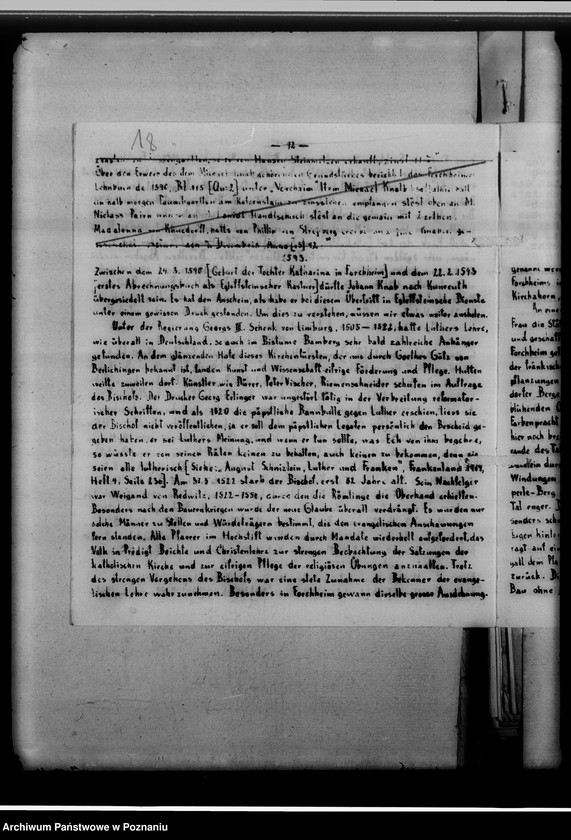 18
— 12 —
Über den Erwerb des dem Michael
Lehnbuch de 1590, Bl. 115
ein halb morgen Paumgartten am Katzenstain zu empfangen stöst oben an M.
Niclass Pairn
Handtschuch stöst an die gemain mit
Magdalena von
1593.
Zwischen dem 24. 3. 1590 [Geburt der Tochter Katharina in Forchheim] und dem 22. 2. 1593
[erstes Abrechnungsbuch als Egloffsteinscher Kastner] dürfte Johann Knab nach Kunreuth
übergesiedelt sein. Es hat den Anschein, als habe er bei diesem Übertritt in Egloffsteinsche Dienste
unter einem gewissen Druck gestanden. Um dies zu verstehen, müssen wir etwas weiter ausholen.
Unter der Regierung Georgs III. Schenk von Limburg, 1505 — 1522, hatte Luthers Lehre,
wie überall in Deutschland, so auch im Bistume Bamberg sehr bald zahlreiche Anhänger
gefunden. An dem glänzenden Hofe dieses Kirchenfürsten, der uns durch Goethes Götz von
Berlichingen bekannt ist, fanden Kunst und Wissenschaft eifrige Förderung und Pflege. Hutten
weilte zuweilen dort. Künstler wie Dürer, Peter Vischer, Riemenschneider schufen im Auftrage
des Bischofs. Der Drucker Georg Erlinger war ungestört tätig in der Verbreitung reformator-
ischer Schriften, und als 1520 die päpstliche Bannbulle gegen Luther erschien, liess sie
der Bischof nicht veröffentlichen, ja er soll dem päpstlichen Legaten persönlich den Bescheid ge-
geben haben, er sei Luthers Meinung, und wenn er tun sollte, was Eck von ihm begehre,
so wüsste er von seinen Räten keinen zu behalten, auch keinen zu bekommen, denn sie
seien alle lutherisch [Siehe: August Schnizlein, Luther und Franken, Frankenland 1914,
Heft 4. Seite 236]. Am 31. 5. 1522 starb der Bischof, erst 52 Jahre alt. Sein Nachfolger
war Weigand von Redwitz, 1522–1556, durch den die Römlinge die Oberhand erhielten.
Besonders nach dem Bauernkriege wurde der neue Glaube überall verdrängt. Es wurden nur
solche Männer zu Stellen und Würdeträgern bestimmt, die den evangelischen Anschauungen
fern standen. Alle Pfarrer im Hochstift wurden durch Mandate wiederholt aufgefordert, das
Volk in Predigt Beichte und Christenlehre zur strengen Beobachtung der Satzungen der
katholischen Kirche und zur eifrigen Pflege der religiösen Übungen anzuhalten. Trotz
des strengen Vorgehens des Bischofs war eine stete Zunahme der Bekenner der evange-
lischen Lehre wahrzunehmen. Besonders in Forchheim gewann dieselbe grosse Ausdehnung.
genannt
Forchheims
Kirchahorn,
An eine
Frau die
und geschaf
Forchheim
der fränkische
pflanzungen
dorfer Berge
blühenden
Farbenpracht
hier noch
rande des
Windungen
perle-Berg
Tal enger.
sonders
tigen hinter
ragt auf
gall dem
zurück.
Bau ohne
Archiwum Państwowe w Poznaniu